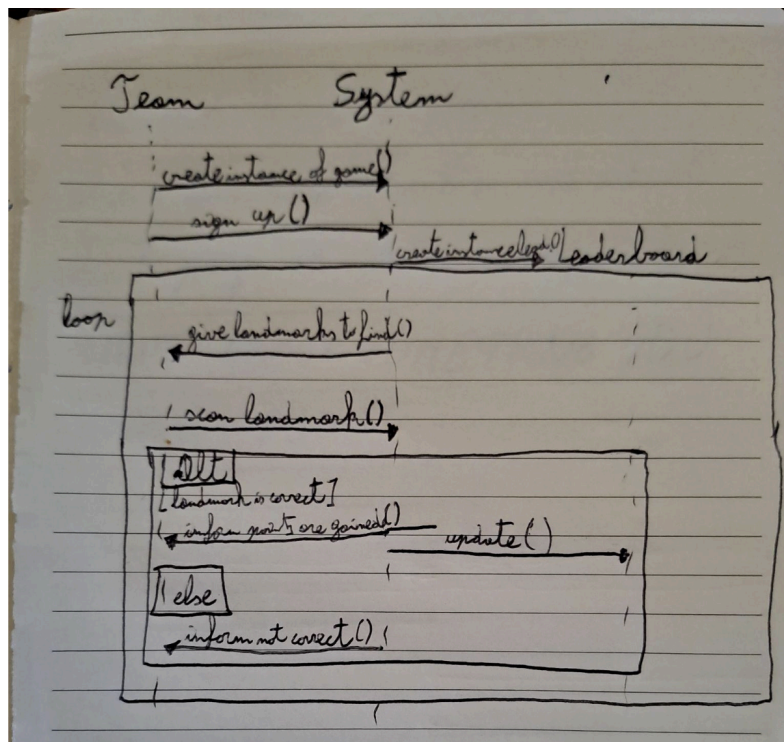 Team System
create instance of game()
sign up ()
create instance lead.() Leaderboard
loop
give landmarks to find()
scan landmark()
Alt
[landmark is correct]
inform points are gained()
update()
else
inform not correct()